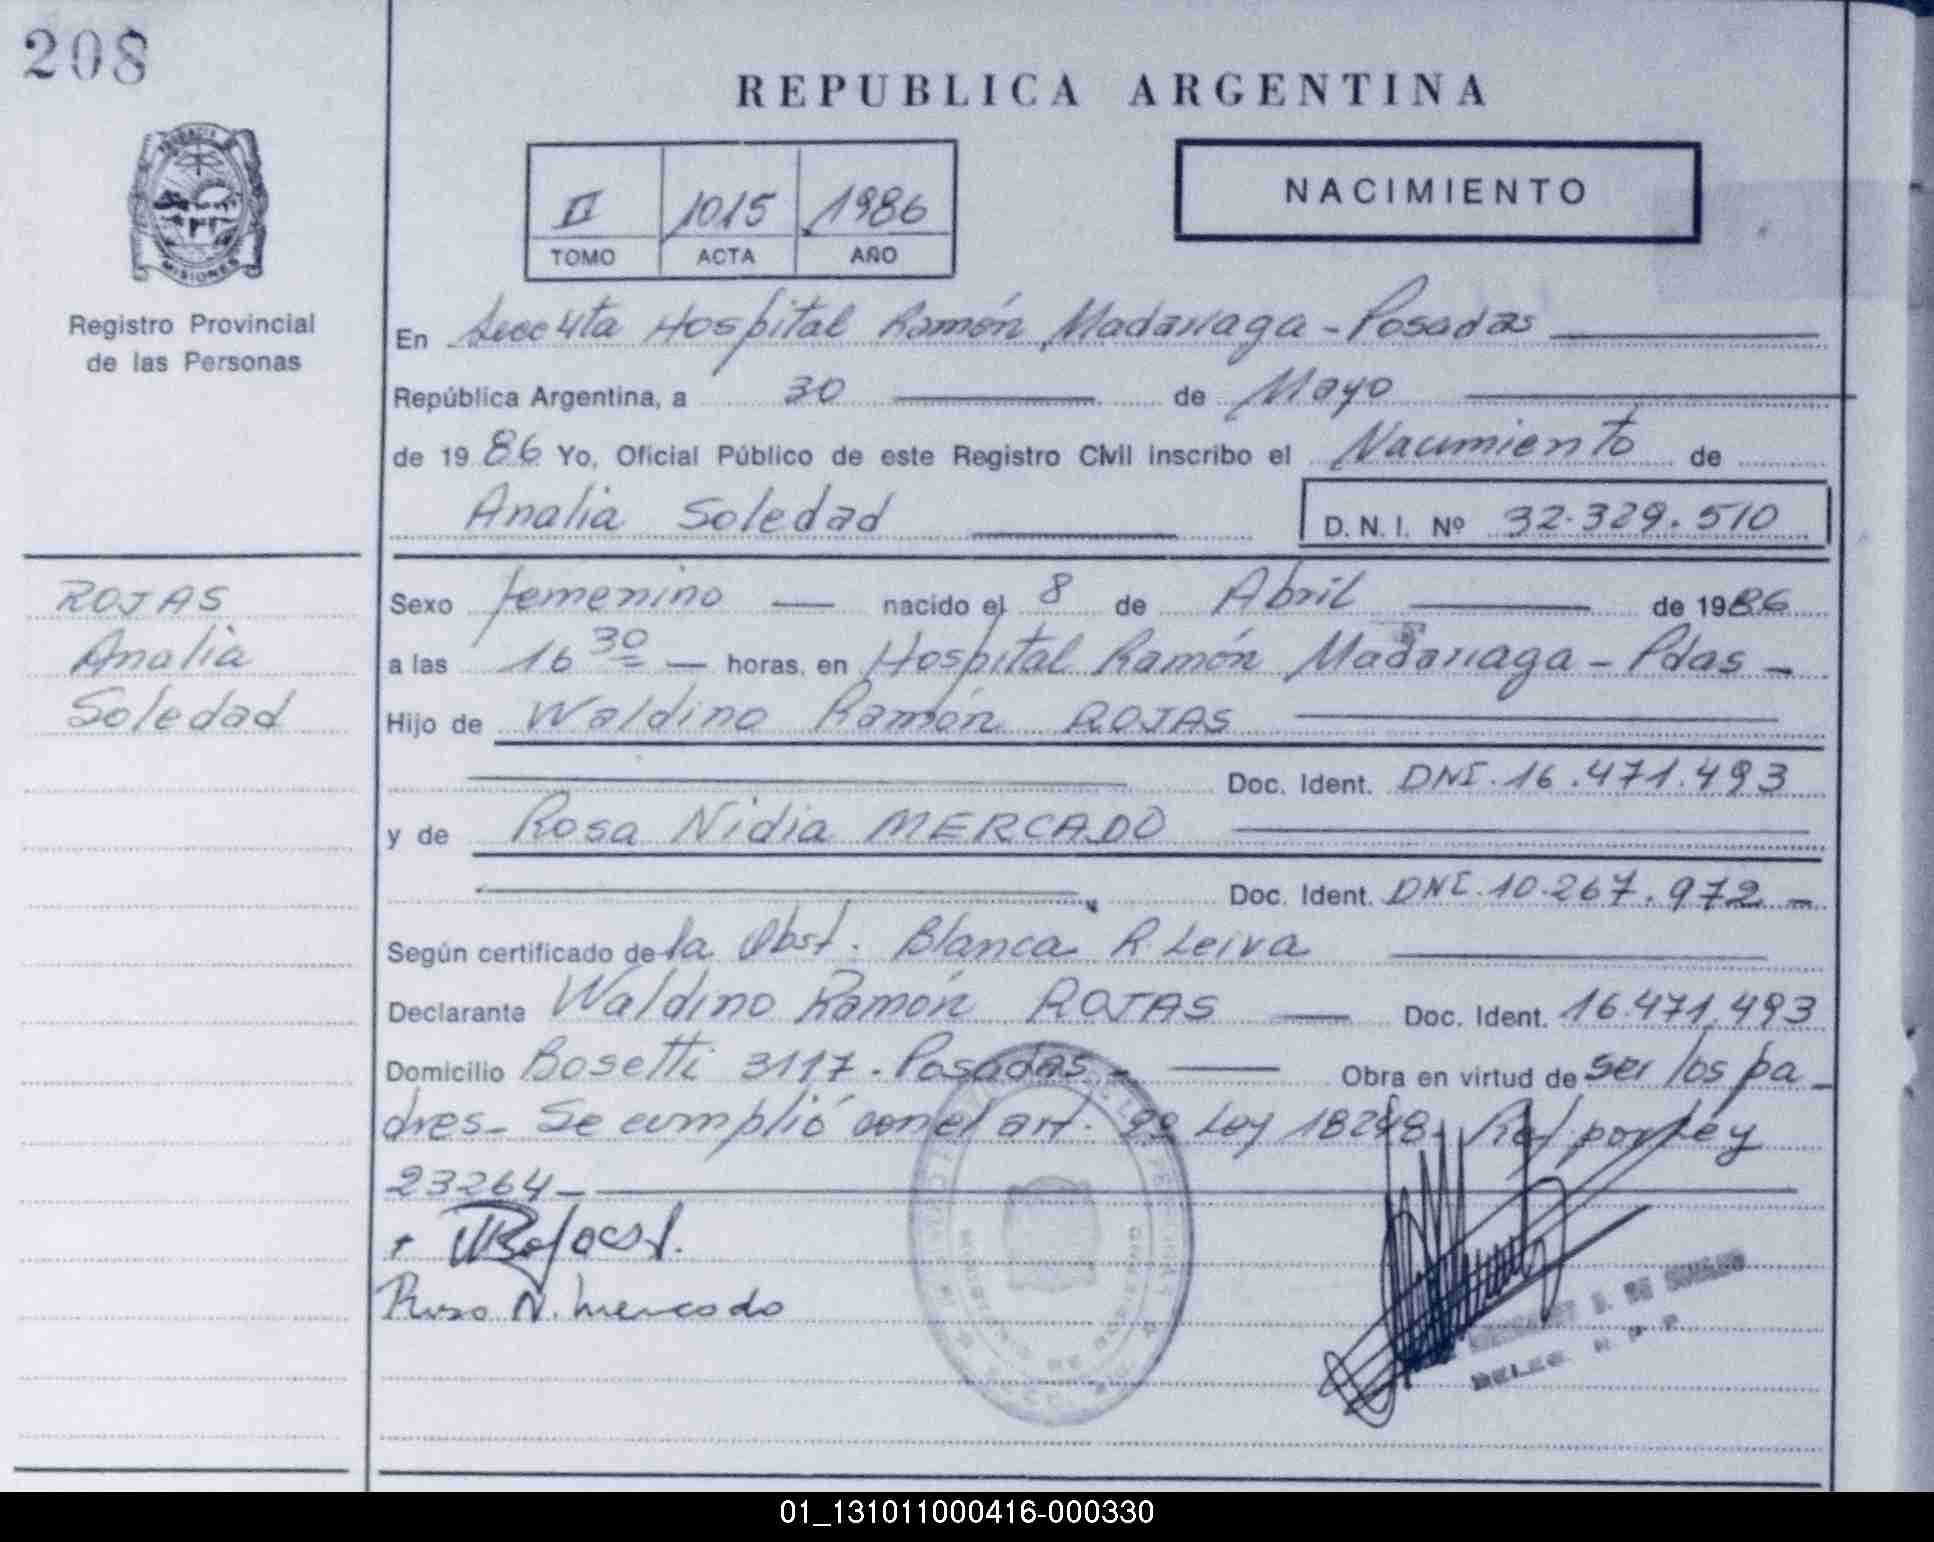 208
REPUBLICA ARGENTINA
NACIMIENTO
II 1015 1986
TOMO ACTA AÑO
MISIONES
Registro Provincial
de las Personas
En Secc 4ta Hospital Ramón Madariaga - Posadas
República Argentina, a 30 de Mayo
de 1986 Yo, Oficial Público de este Registro Civil inscribo el Nacimiento de
Analia Soledad D. N. I. Nº 32.329.510
ROJAS
Analia
Soledad
Sexo femenino — nacido el 8 de Abril de 1986
a las 16 30 — horas, en Hospital Ramón Madariaga - Pdas -
Hijo de Waldino Ramón ROJAS
Doc. Ident. DNI. 16.471.493
y de Rosa Nidia MERCADO
Doc. Ident. DNI. 10.267.972 -
Según certificado de la Obst. Blanca R. Leiva
Declarante Waldino Ramón ROJAS — Doc. Ident. 16.471.493
Domicilio Bosetti 3117. Posadas - Obra en virtud de ser los pa_
dres_ Se cumplió con el art. Ley 18248. Ref por Ley
23264_
Rosa N. Mercado
DELEG. R. P. P.
01_131011000416-000330